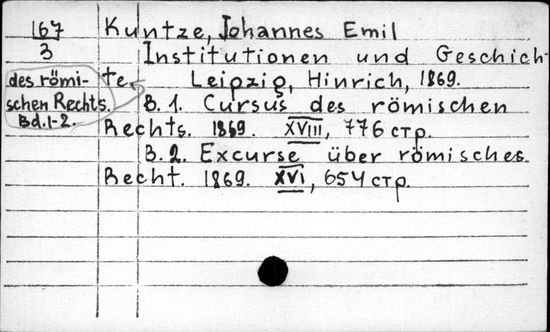 167
3
Kuntze, Johannes Emil
Institutionen und Geschich-
te des römi-
schen Rechts.
Bd. 1-2.
Leipzig, Hinrich, 1869.
B. 1. Cursus des römischen
Rechts. 1869. XVIII, 776 стр.
B. 2. Excurse über römisches
Recht. 1869. XVI, 654 стр.